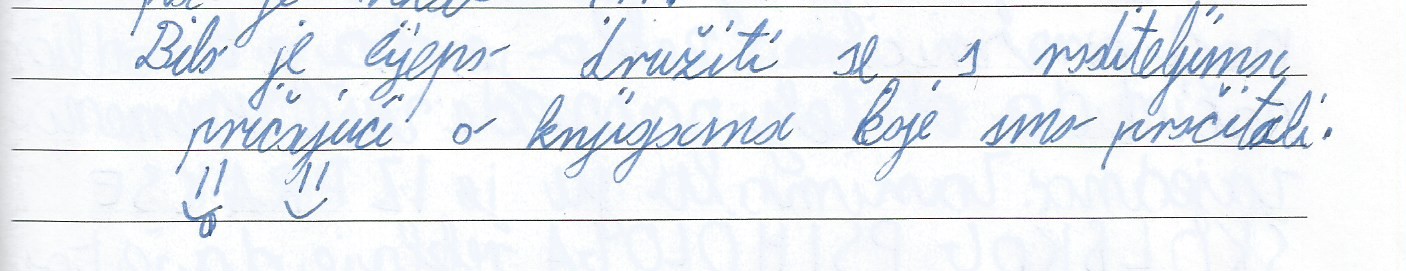 Bilo je lijepo družiti se s roditeljima
pričajući o knjigama koje smo pročitali.